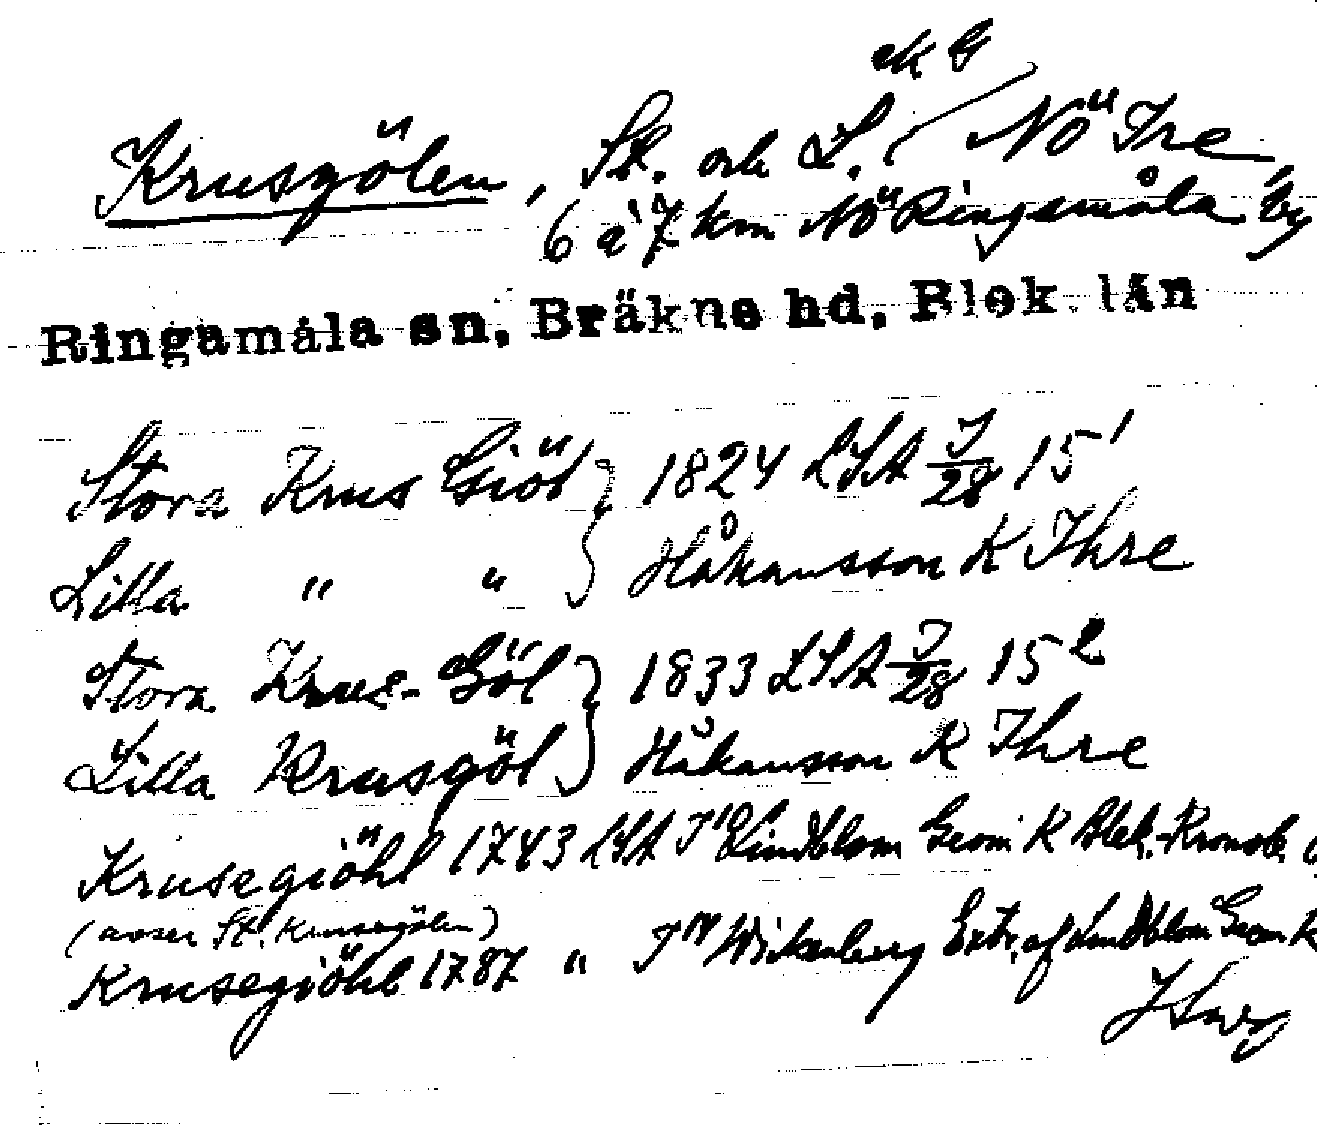 ek G
Krusgölen, St. och L. NÖ Ire
6 à 7 km NÖ Ringamåla by
Ringamåla sn, Bräkne hd, Blek. län
Stora Krus Giöl } 1824 LSA J/28 15¹
Lilla " " } Håkansson K Ihre
Stora Krus-Göl } 1833 LSA J/28 15²
Lilla Krusgöl } Håkansson K Ihre
Krusegiöhl 1743 LSA Lindblom Geom K Blek.
(avser St. Krusgölen)
Krusegiöhl 1787 " Wikenberg Extr. af Lindblom Geom K